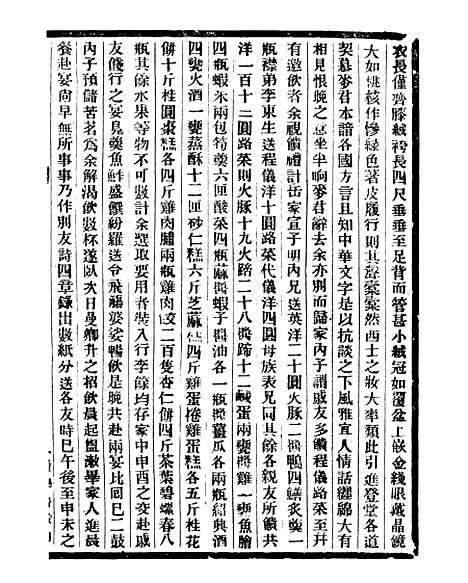 衣長僅齊膝絨袴長四尺垂垂至足背而管甚小絨冠如覆盆上嵌金綫眼戴晶鏡
大如桃核作慘綠色著皮履行則其聲橐橐然西士之妝大率類此引進登堂各道
契慕麥君本諳各國方言且知中華文字是以抗談之下風雅宜人情話纏綿大有
相見恨晚之意坐半晌麥君辭去余亦別而歸家內子謂戚友多饋程儀路菜至幷
有邀飲者余視饋禮計岳家宣子明內兄送英洋二十圓火腿二醬鴨四鱔炙羹一
瓶襟弟李東生送程儀洋四圓路菜代儀洋四圓母族表兄同其餘各親友所饋共
洋一百十二圓路菜則火腿十九火踏二十八醬蹄十二鹹蛋兩甕醬雞一魚膾
四瓶蝦米兩包筍羹六匣酸菜四瓶麻醬蝦子醬油各一瓶醬薑瓜各兩瓶紹興酒
四甕火酒一甕蒸酥十二匣砂仁糕六斤芝蔴糕四斤雞蛋糕各五斤桂花
餅十斤桂圓棗糕各四斤雞肉脯兩瓶雞肉餃二百隻杏仁餅四斤茶葉碧螺春八
瓶其餘水果等物不可數計余選取要用者裝入行李餘均存家中申酉之交赴戚
友餞行之宴見羹魚鮮盛饌紛羅送令飛觴婆娑暢飲是晚共赴兩宴比回已二鼓
內子預儲苦茗爲余解渴飲數杯遂臥次日曼卿升之招飲晨起盥漱畢家人進晨
餐赴宴尙早無所事事乃作別友詩四章錄出數紙分送各友時巳午後至申未之